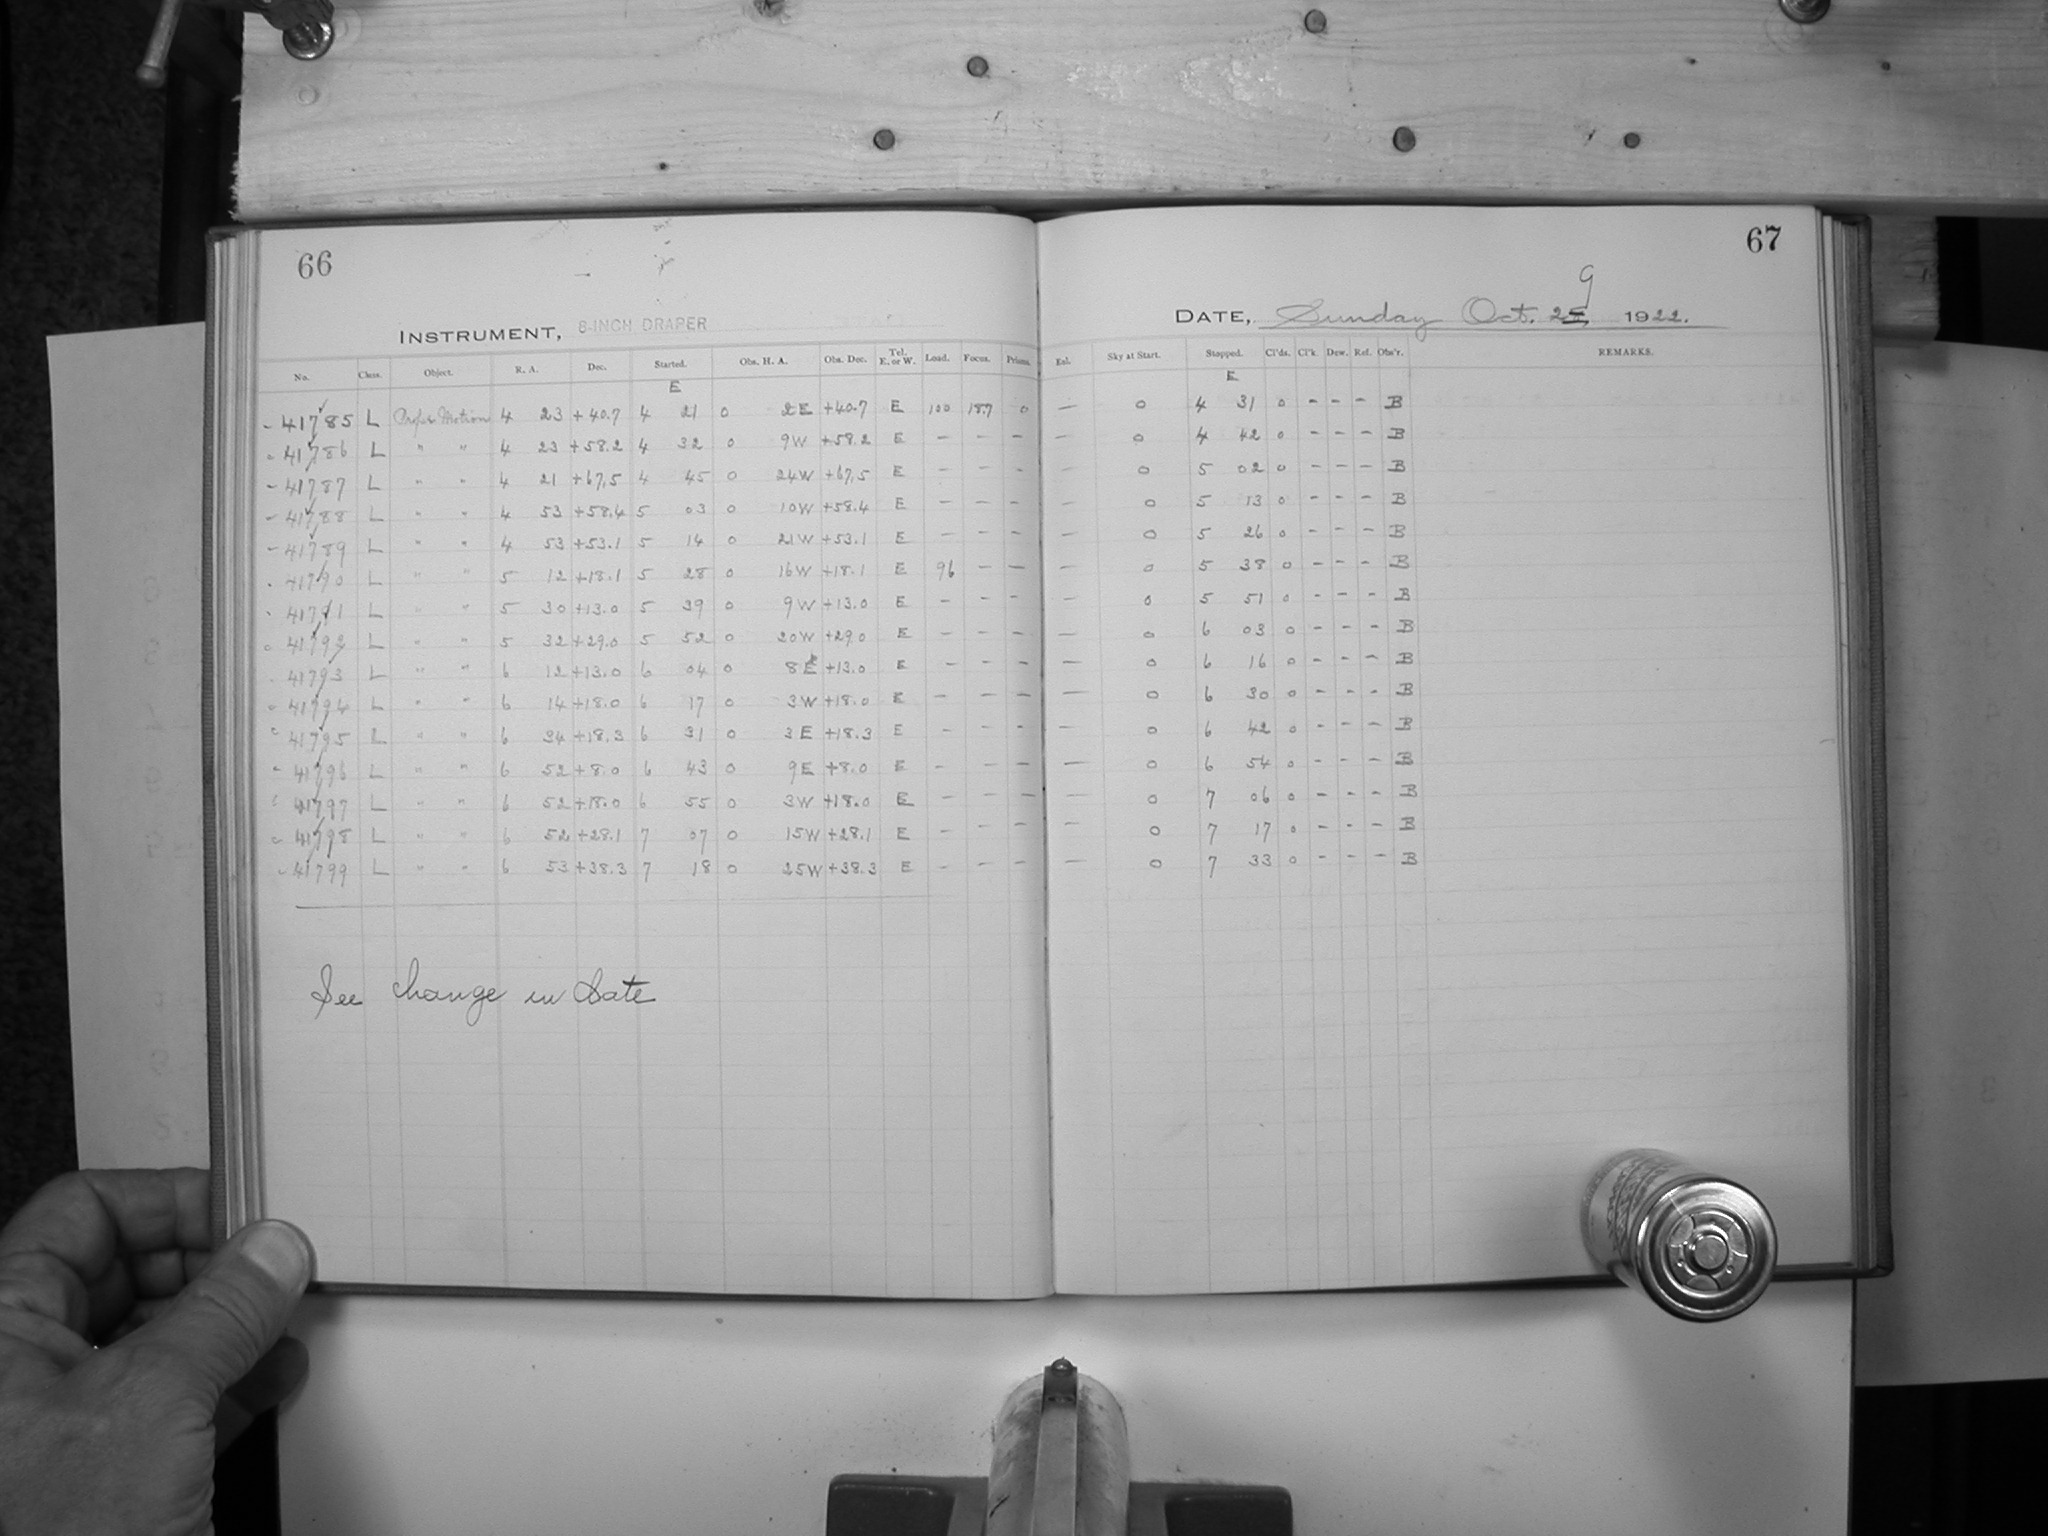 66
67
INSTRUMENT, 8-INCH DRAPER
DATE, Sunday Oct. 9 1922.
No. Class. Object. R. A. Dec. Started. Obs. H. A. Obs. Dec. Tel. E. or W. Load. Focus. Prisms. Esl. Sky at Start. Stopped. Cl'ds. Cl'k. Dew. Ref. Obs'r. REMARKS.
E E
- 41785 L Proper Motion 4 23 +40.7 4 21 0 2E +40.7 E 100 18.7 0 — 0 4 31 0 - - - B
41786 L " " 4 23 +58.2 4 32 0 9W +58.2 E - - - — 0 4 42 0 - - - B
- 41787 L " " 4 21 +67.5 4 45 0 24W +67.5 E - - - — 0 5 02 0 - - - B
- 41788 L " " 4 53 +58.4 5 03 0 10W +58.4 E - - - — 0 5 13 0 - - - B
- 41789 L " " 4 53 +53.1 5 14 0 21W +53.1 E - - - — 0 5 26 0 - - - B
41790 L " " 5 12 +18.1 5 28 0 16W +18.1 E 96 - - — 0 5 38 0 - - - B
41791 L " " 5 30 +13.0 5 39 0 9W +13.0 E - - - — 0 5 51 0 - - - B
41792 L " " 5 32 +29.0 5 52 0 20W +29.0 E - - - — 0 6 03 0 - - - B
41793 L " " 6 12 +13.0 6 04 0 8E +13.0 E - - - — 0 6 16 0 - - - B
41794 L " " 6 14 +18.0 6 17 0 3W +18.0 E - - - — 0 6 30 0 - - - B
41795 L " " 6 34 +18.3 6 31 0 3E +18.3 E - - - — 0 6 42 0 - - - B
41796 L " " 6 52 +8.0 6 43 0 9E +8.0 E - - - — 0 6 54 0 - - - B
41797 L " " 6 52 +18.0 6 55 0 3W +18.0 E - - - — 0 7 06 0 - - - B
41798 L " " 6 52 +28.1 7 07 0 15W +28.1 E - - - — 0 7 17 0 - - - B
41799 L " " 6 53 +38.3 7 18 0 25W +38.3 E - - - — 0 7 33 0 - - - B
See change in Date